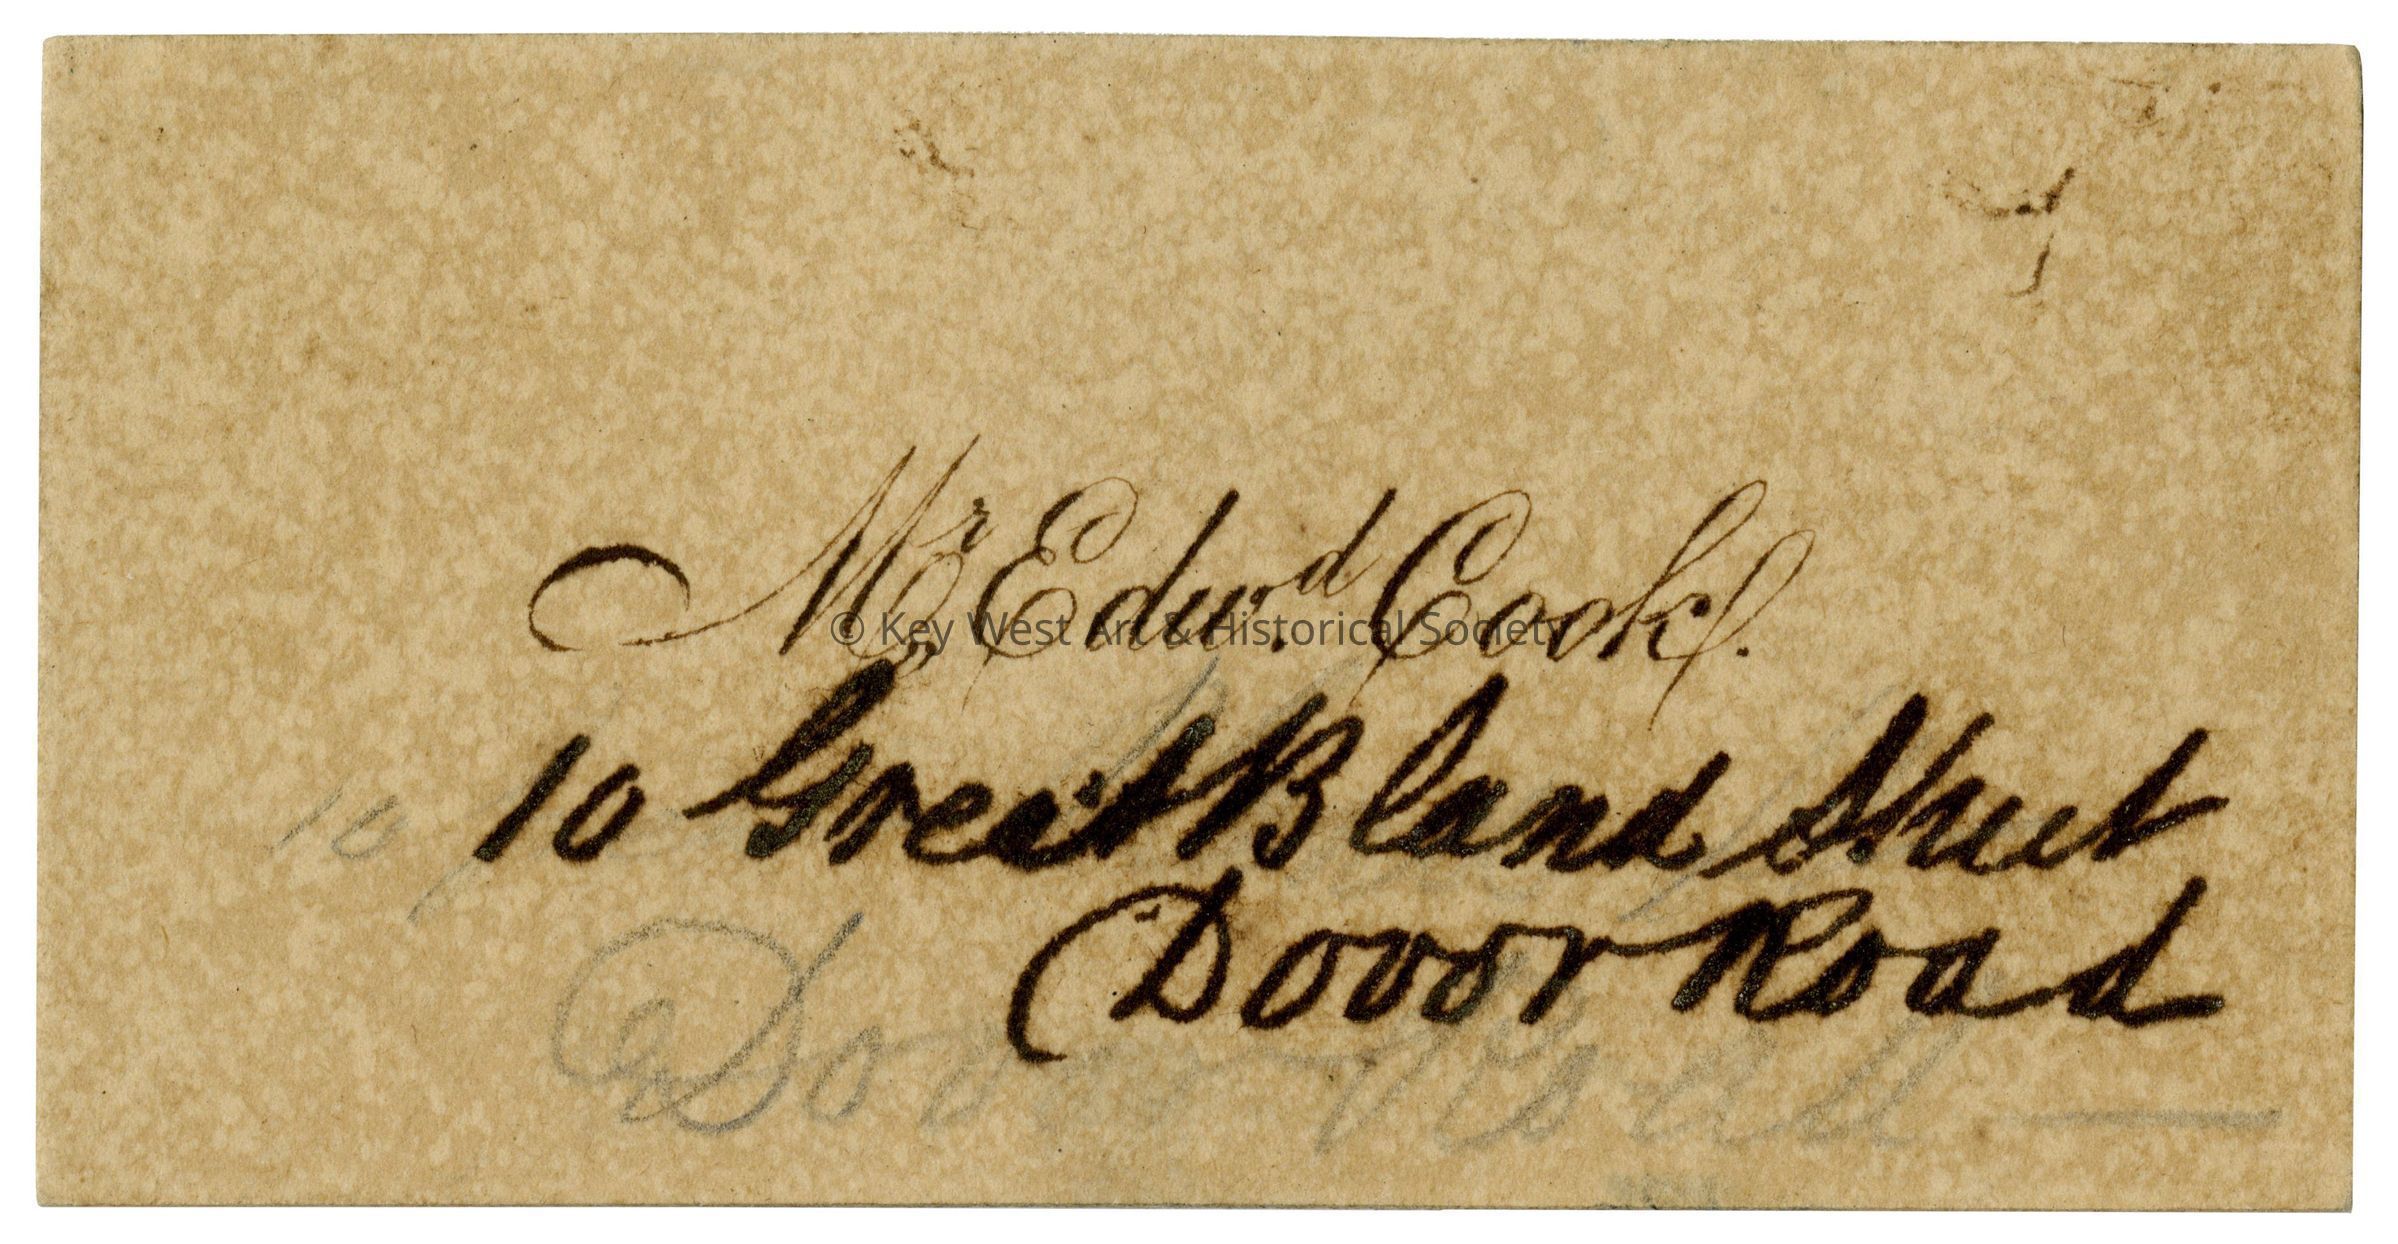 Mr Edwd. Cook.
© Key West Art & Historical Society
10 Great Bland Street
10
Dovor Road
Dovor Road